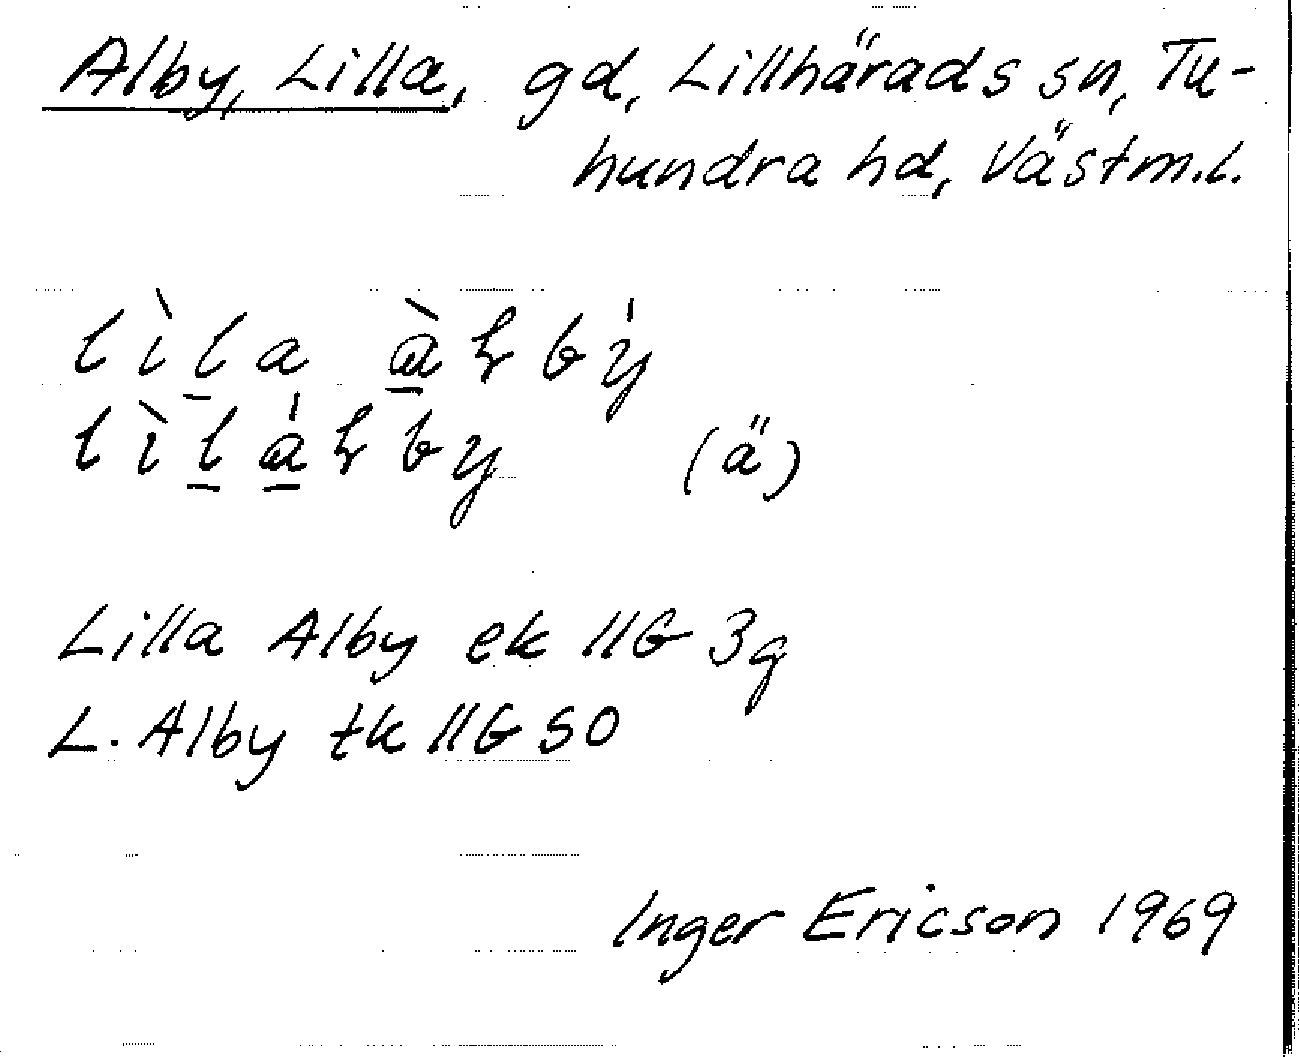 Alby, Lilla, gd, Lillhärads sn, Tu-
hundra hd, Västm.l.
(ä)
Lilla Alby ek 11G 3g
L. Alby tk 11G SO
Inger Ericson 1969